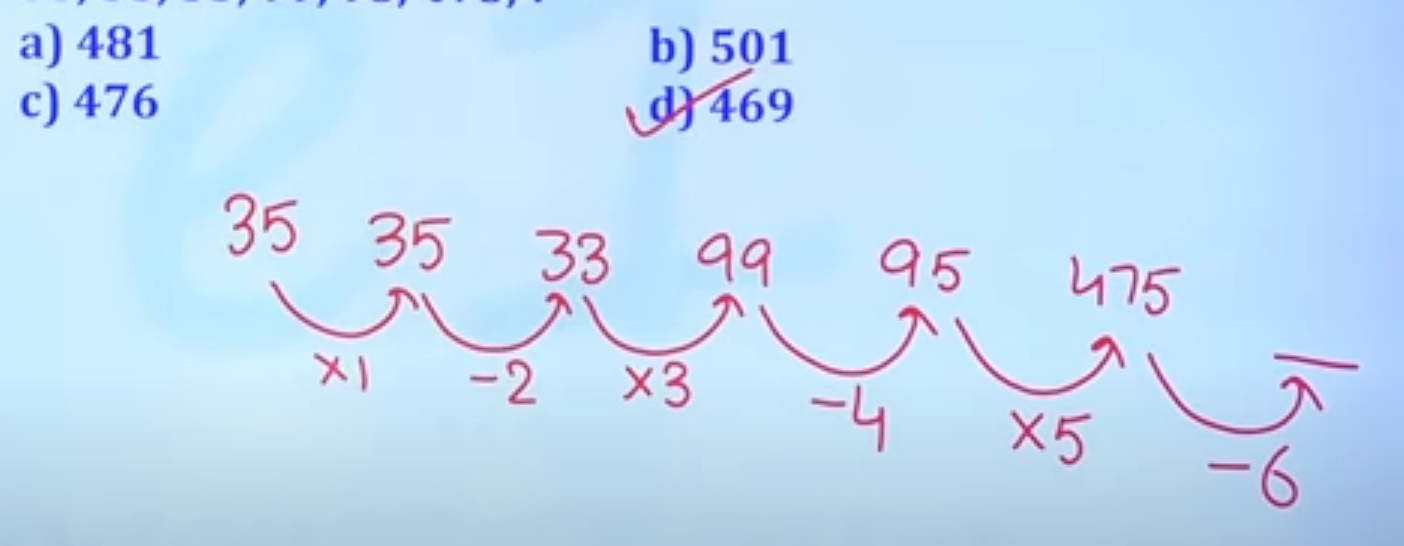 a) 481 b) 501
c) 476 d) 469
35 35 33 99 95 475 _
×1 -2 ×3 -4 ×5 -6